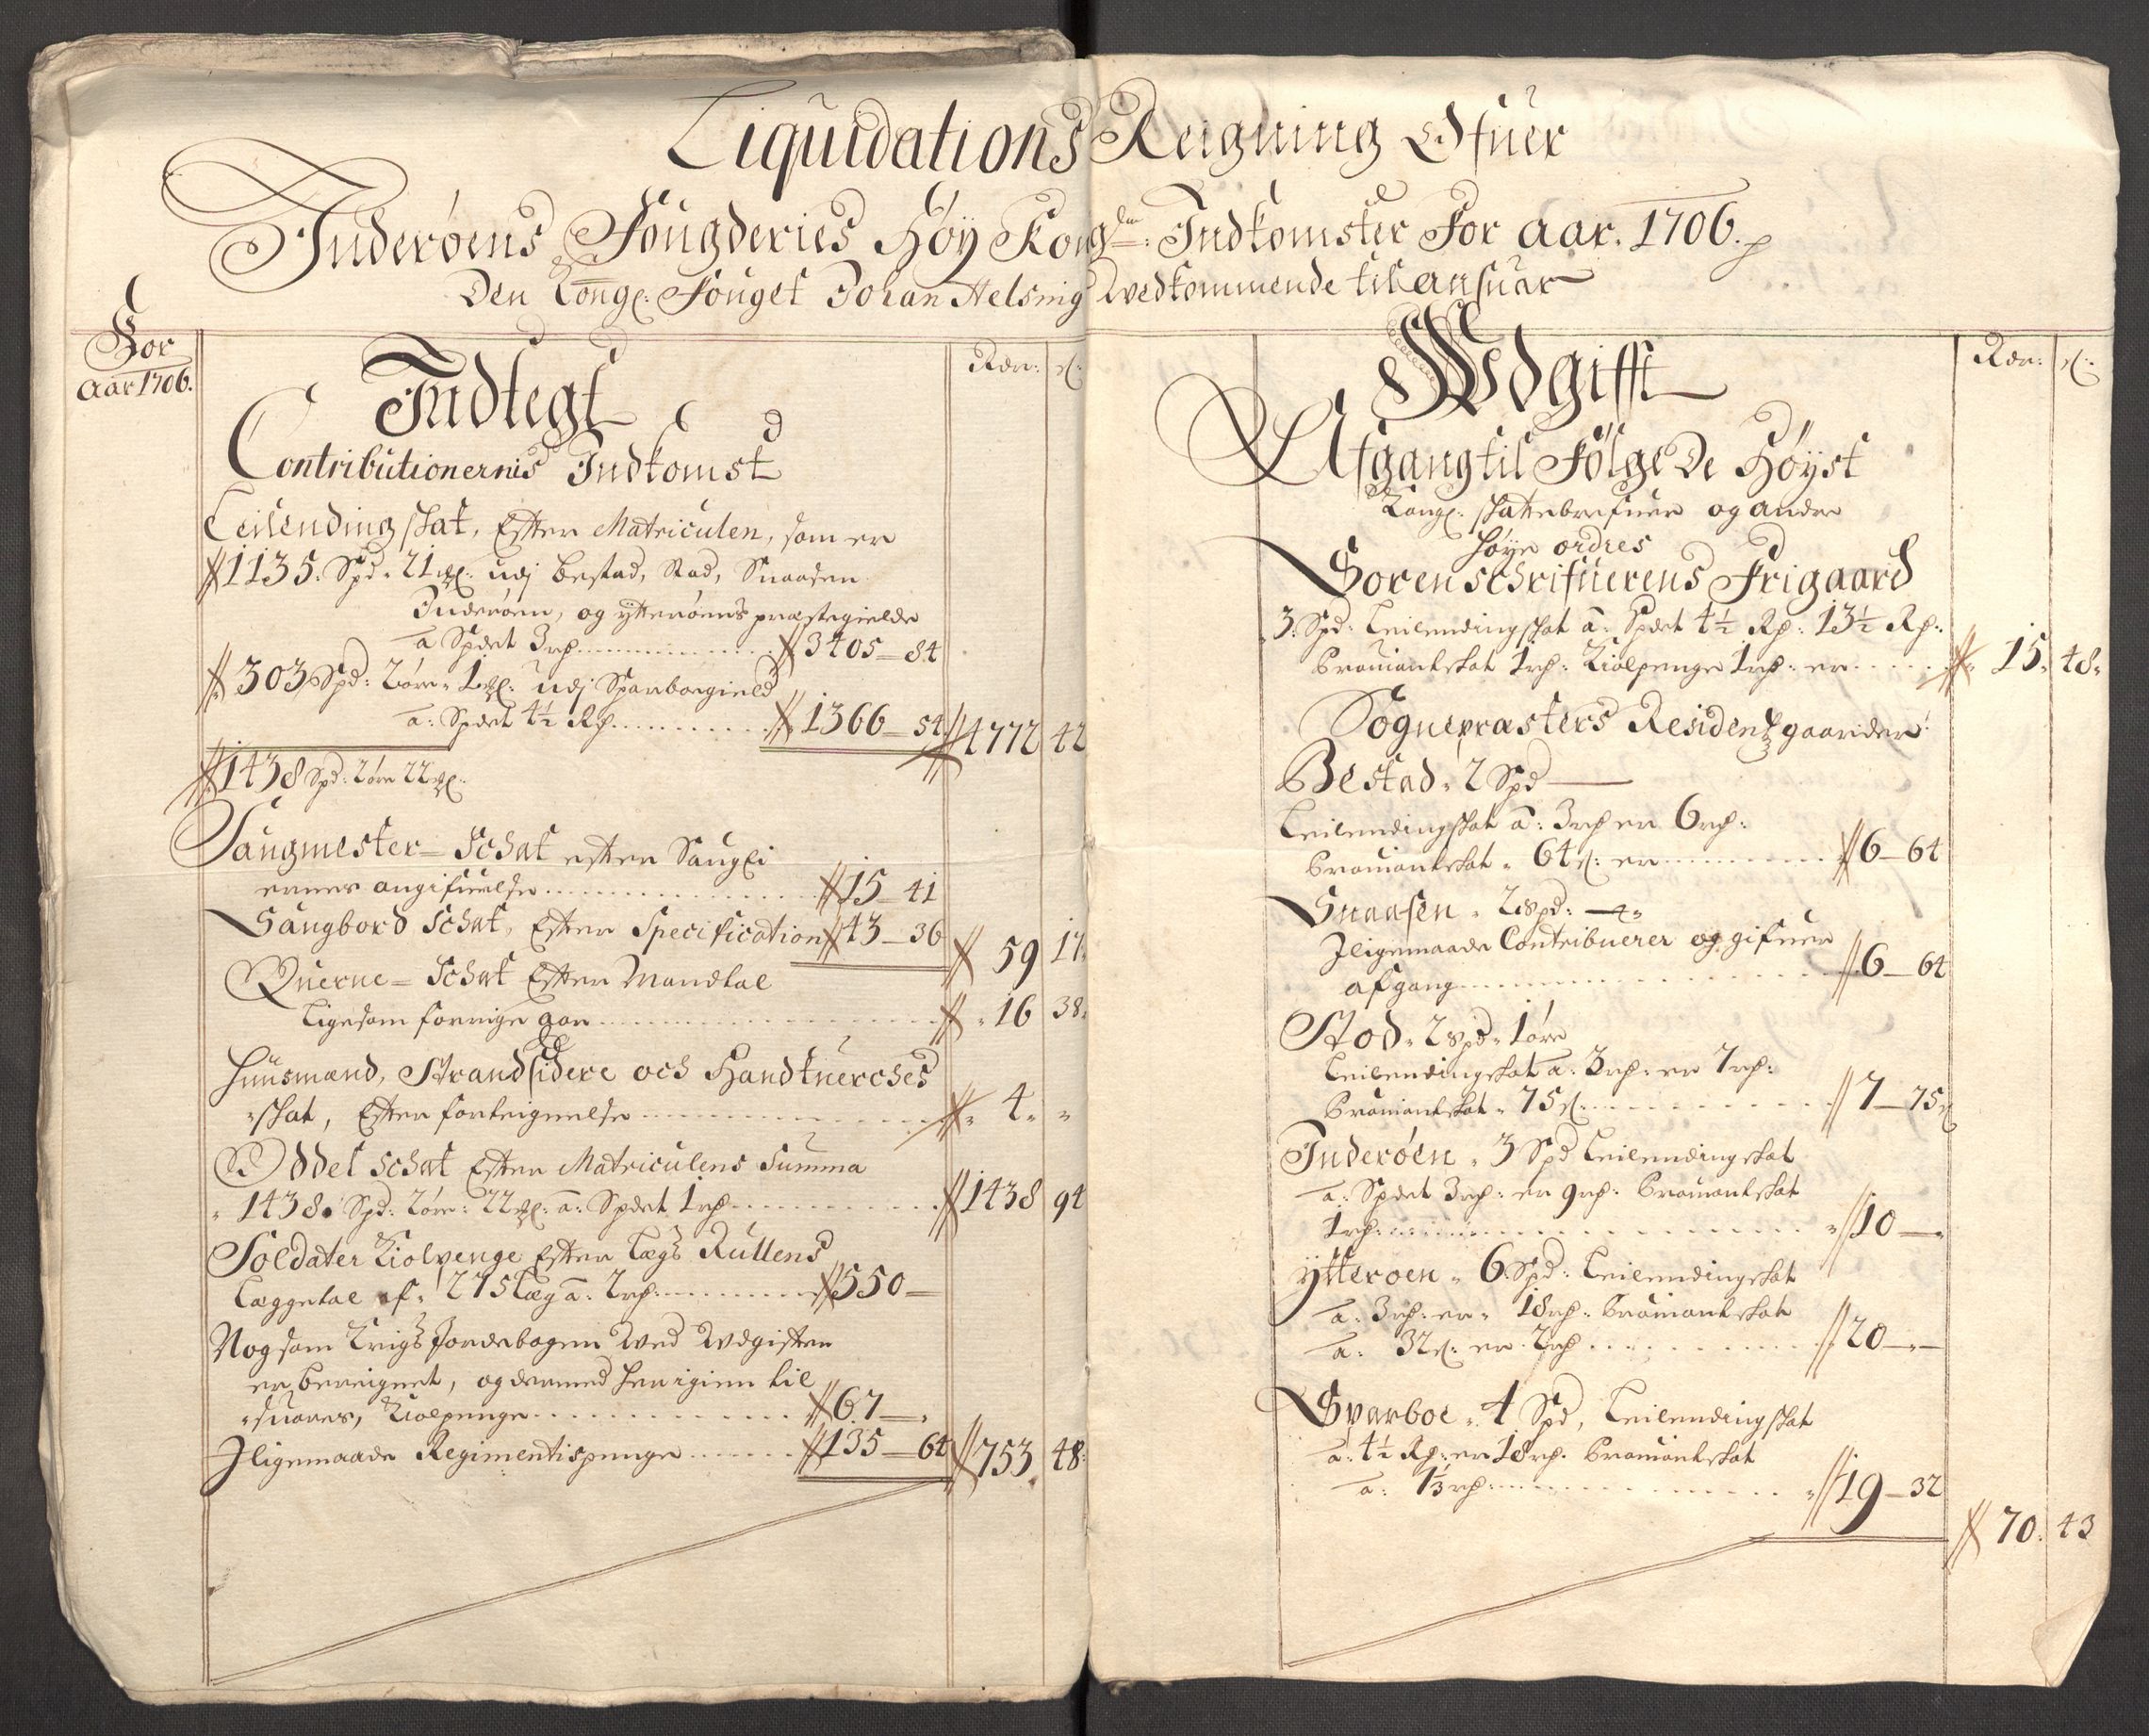 Liquidations Reigning Ofuer
Inderøens Fougderies Høy Kongl: Indkomster For aar. 1706.
Den Kongl: Fouget Johan Helsing Wedkommende til ansuar
For
aar 1706.
Rdr: s:
Indtegt
Contributionernis Indkomst
Leilending skat, Efter Matriculen, som er
1135. Spd. 21 mkl: udj Bestad, Stod, Snaasen
Inderøen, og ytterøens præstegielde
a Spdet 3 rd 3405 - 84
303 Spd: 2 øre 1 mkl: udj Sparboegield
a: Spdet 4½ Rd 1366 - 54 4772 42
1438 Spd: 2 øre 22 mkl.
Saugmester-Schat efter Saugei
ernes angifuelse 15 - 41
Saugbord Schat, Efter Specification 43 - 36 59 17
Querne-Schat Efter Mandtal
Ligesom forrige aar 16 38
Huusmænd, Strandsidere och Handtuerches
skat, Efter forteignelse 4
Oddel Schat Efter Matriculens Summa
1438. Spd: 2 øre: 22 mkl. a: Spdet 1 rd 1438 94
Soldater Kiolpenge Efter Lægs Rullens
Læggetal af. 275 Læg a: 2 rd: 550 -
Nog som Krigs Jordebogen Wed Wdgiften
er bereignet, og dermed henigien til
suares, Kiolpenge 67 -
Iligemaade Regimentispenge 135 - 64 753 48
Rdr: s:
Wdgifft
Afgang til Følge De Høyst
Kongl: skattebrefuer og andre
høye ordres
Sorenschrifuerens Frigaard
3: Spd: Leilendingskat a: Spdet 4½ Rd: 13½ Rd:
Prouiantskat 1 rd: Kiolpenge 1 rd: er 15 48
Sognepræsters Residentz gaarider
Bestad 2 Spd
Leilendingskat a: 3 rd er 6 rd:
Prouiantskat 64 s: er 6 - 64
Snaasen 2 spd:
Iligemaade Contribuerer og gifuer
afgang 6 - 64
Stod 2 spd 1 øre
Leilendingskat a: 3 rd: er 7 rd:
Prouiantskat 75 s. 7 - 75
Inderøen 3 Spd Leilendingskat
a: Spdet 3 rd: er 9 rd: Prouiantskat
1 rd: 10 -
ytterøen 6 Spd: Leilendingskat
a: 3 rd: er 18 rd: Prouiantskat
a: 32 s: er 2 rd 20 -
Sparboe 4 Spd, Leilendingskat
a: 4½ Rd: er 18 rd. Prouiantskat
a: 1⅓ rd: 19 - 32
70 43